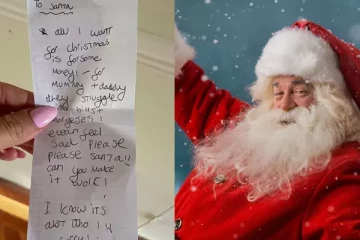 To Santa
all I want
for christmas
is for some
money! - for
mummy + daddy
they struggle
bills +
I even feel
Sad Please
Please santa!!
can you make
it work!
I know its
not